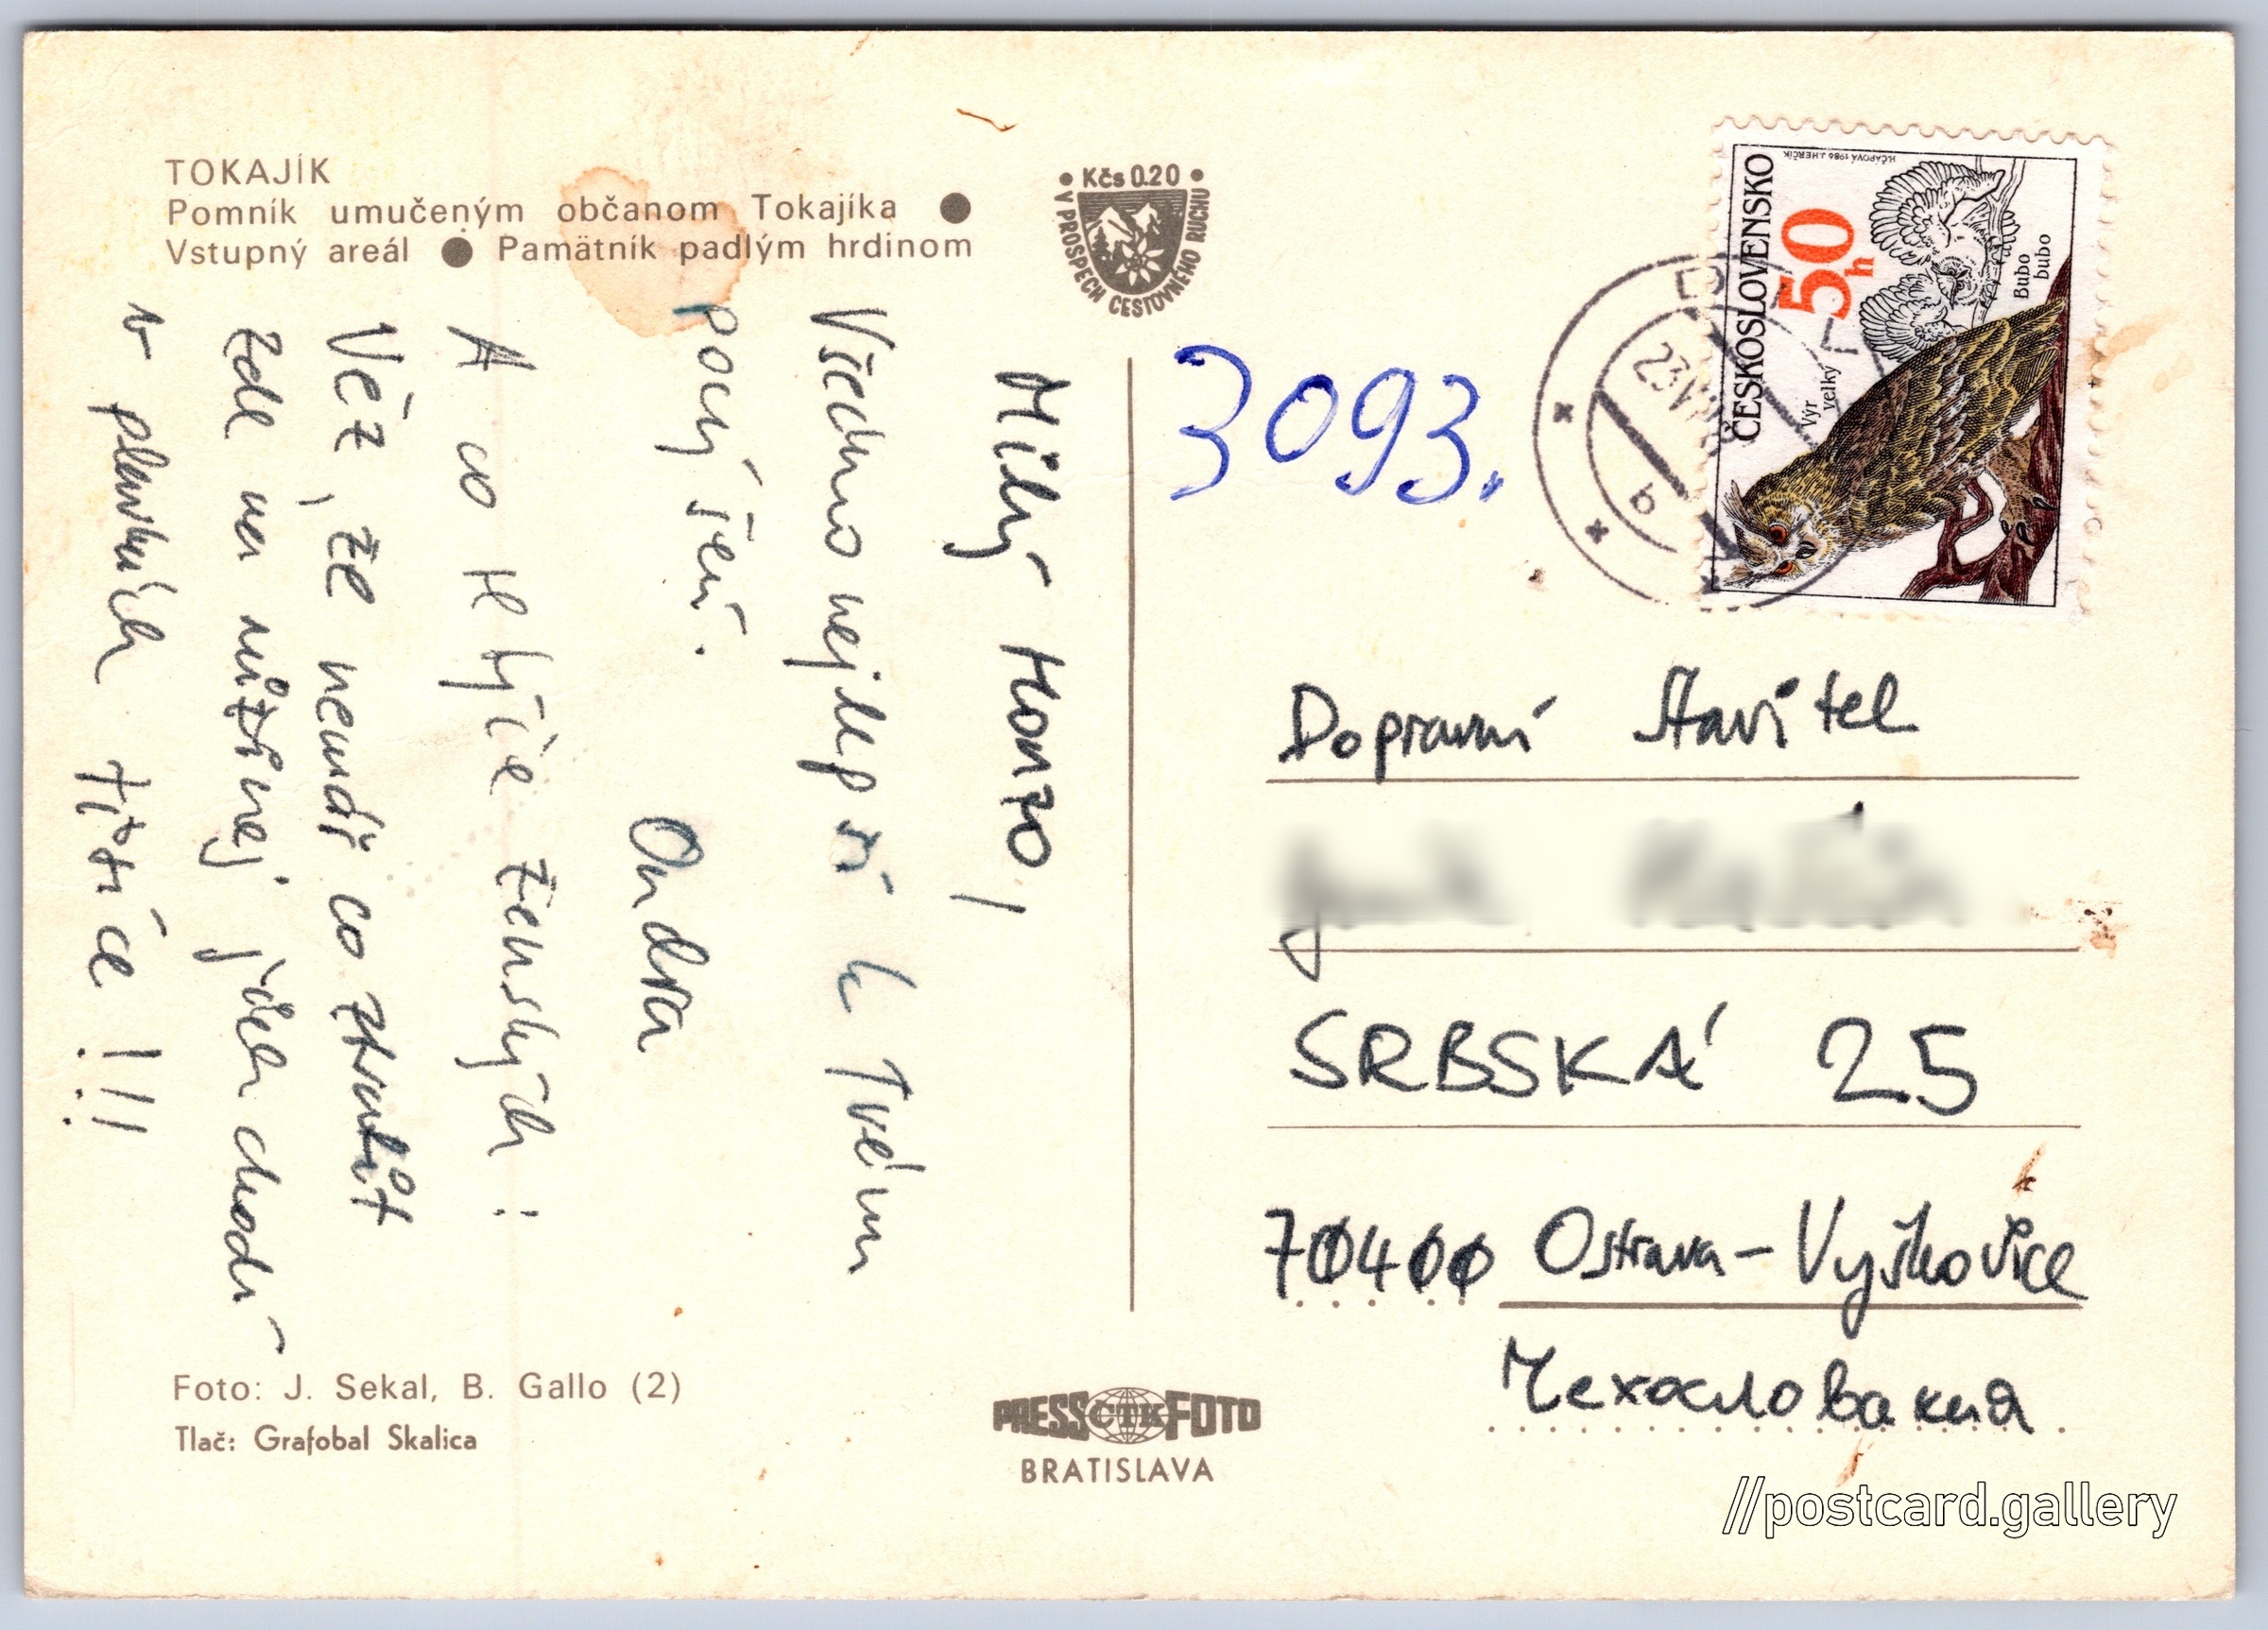 TOKAJÍK
Pomník umučeným občanom Tokajíka ●
Vstupný areál ● Pamätník padlým hrdinom
● Kčs 0.20 ●
V PROSPECH CESTOVNÉHO RUCHU
Milý Honzo,
Všechno nejlepší k Tvému
Ondra
A co se týče ženských:
Věz, že nemáš co ztratit
zde na
v plavkách tisíce !!!
Foto: J. Sekal, B. Gallo (2)
Tlač: Grafobal Skalica
PRESS ČTK FOTO
BRATISLAVA
3093.
ČESKOSLOVENSKO
50 h
Výr velký
Bubo bubo
H.ČÁPOVÁ 1986 J.HERČÍK
23.VII
a
Dopravní stavitel
SRBSKÁ 25
70400 Ostrava-Vyškovice
Чехословакия
//postcard.gallery